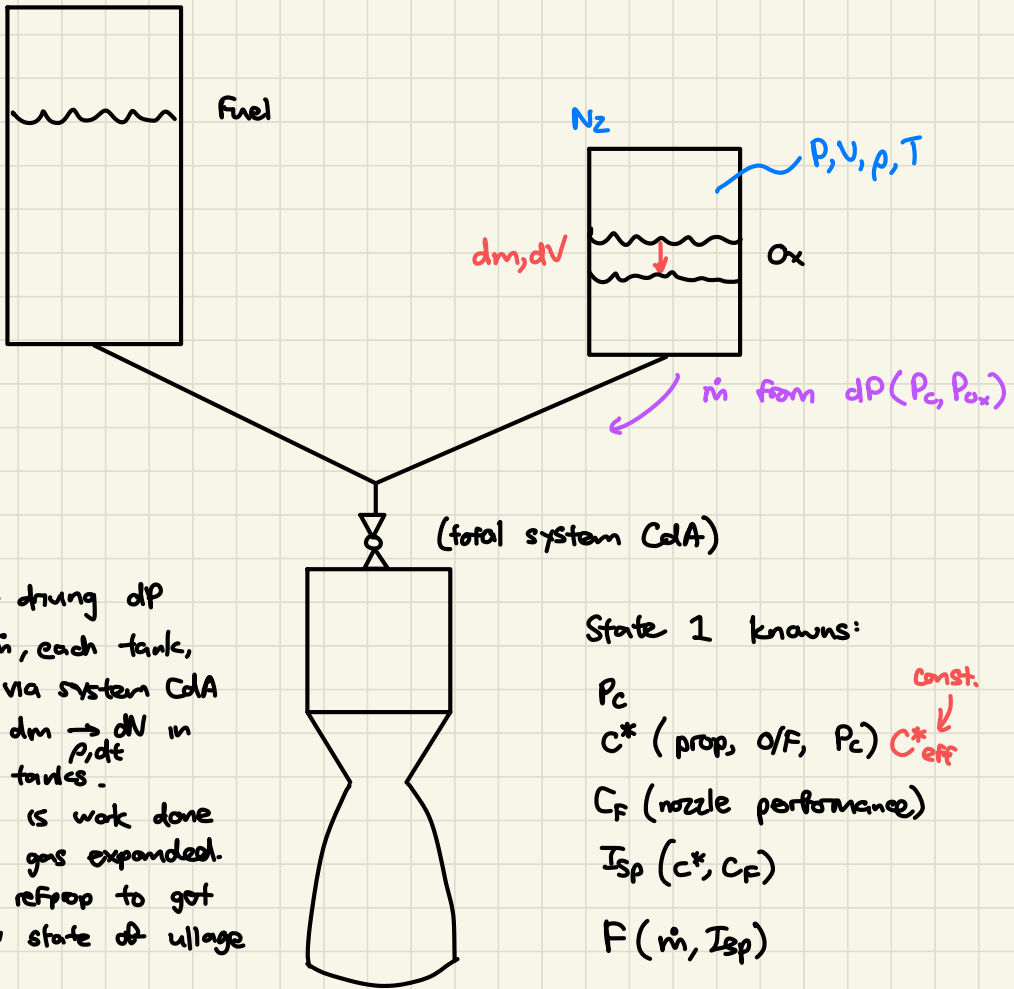 Fuel
N2
P, V, ρ, T
dm, dV
Ox
ṁ from dP(Pc, Pox)
(total system CdA)
driving dP
, each tank,
via system CdA
dm → dV in
ρ, dt
tanks.
is work done
gas expanded.
refprop to get
state of ullage
State 1 knowns:
Pc
const.
C* (prop, O/F, Pc) C*eff
CF (nozzle performance)
Isp (c*, CF)
F (ṁ, Isp)